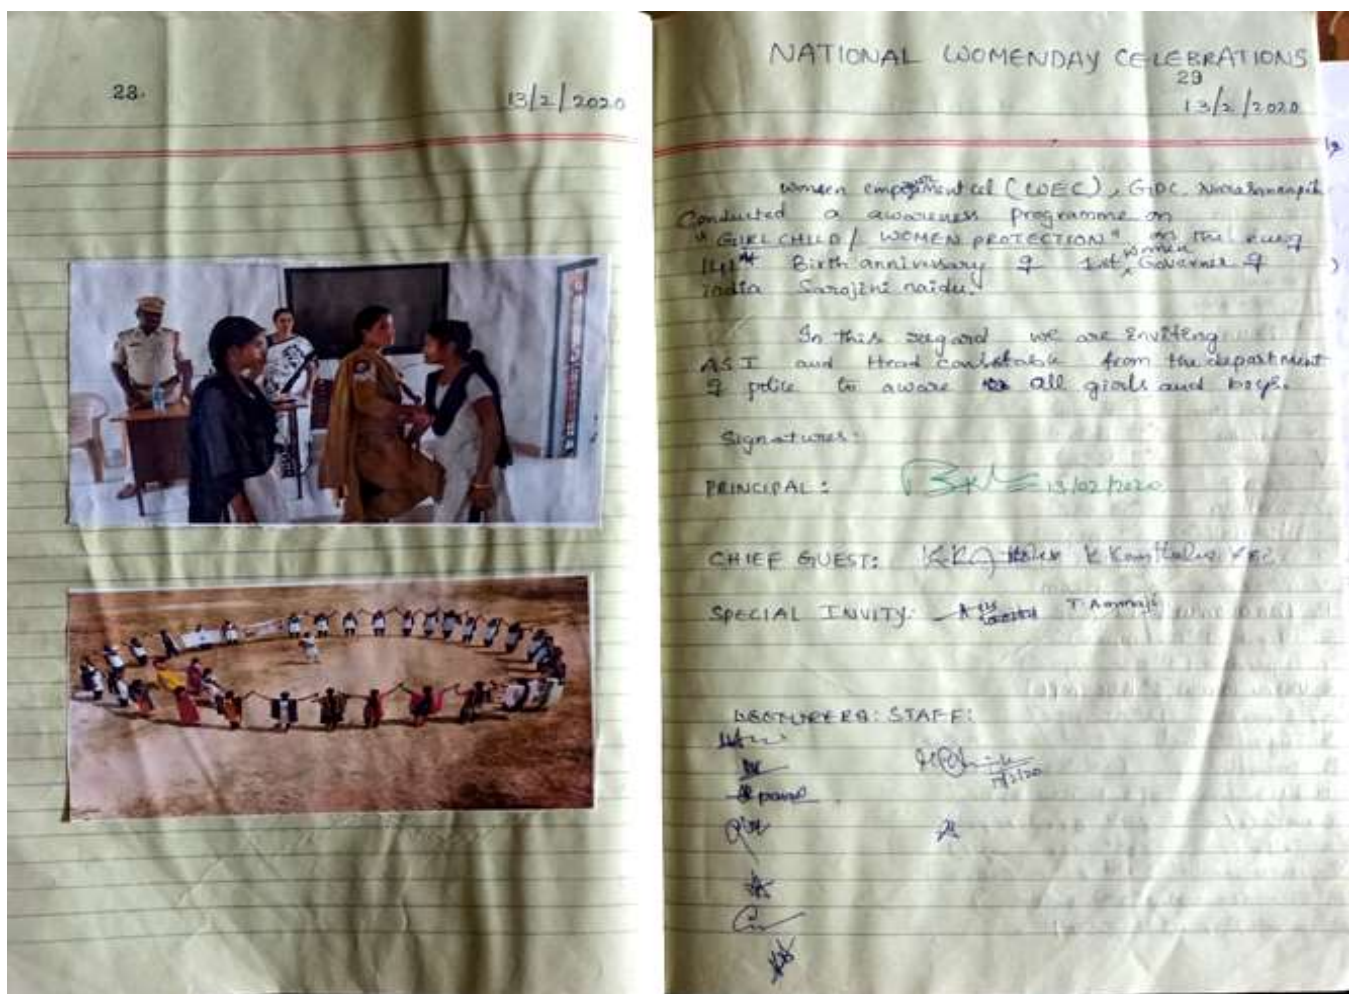 28.
13/2/2020
NATIONAL WOMENDAY CELEBRATIONS
29
13/2/2020
Women cell (WEC), GDC
Conducted a awareness programme on
"GIRL CHILD / WOMEN PROTECTION" on the
141st Birth anniversary of 1st women Governer of
india Sarojini naidu.
In this regard we are inviting
ASI and Head from the department
of police to aware all girls and boys.
Signatures:
PRINCIPAL: 13/02/2020
CHIEF GUEST:
SPECIAL INVITY: T. Ammaji
LECTURERS: STAFF: